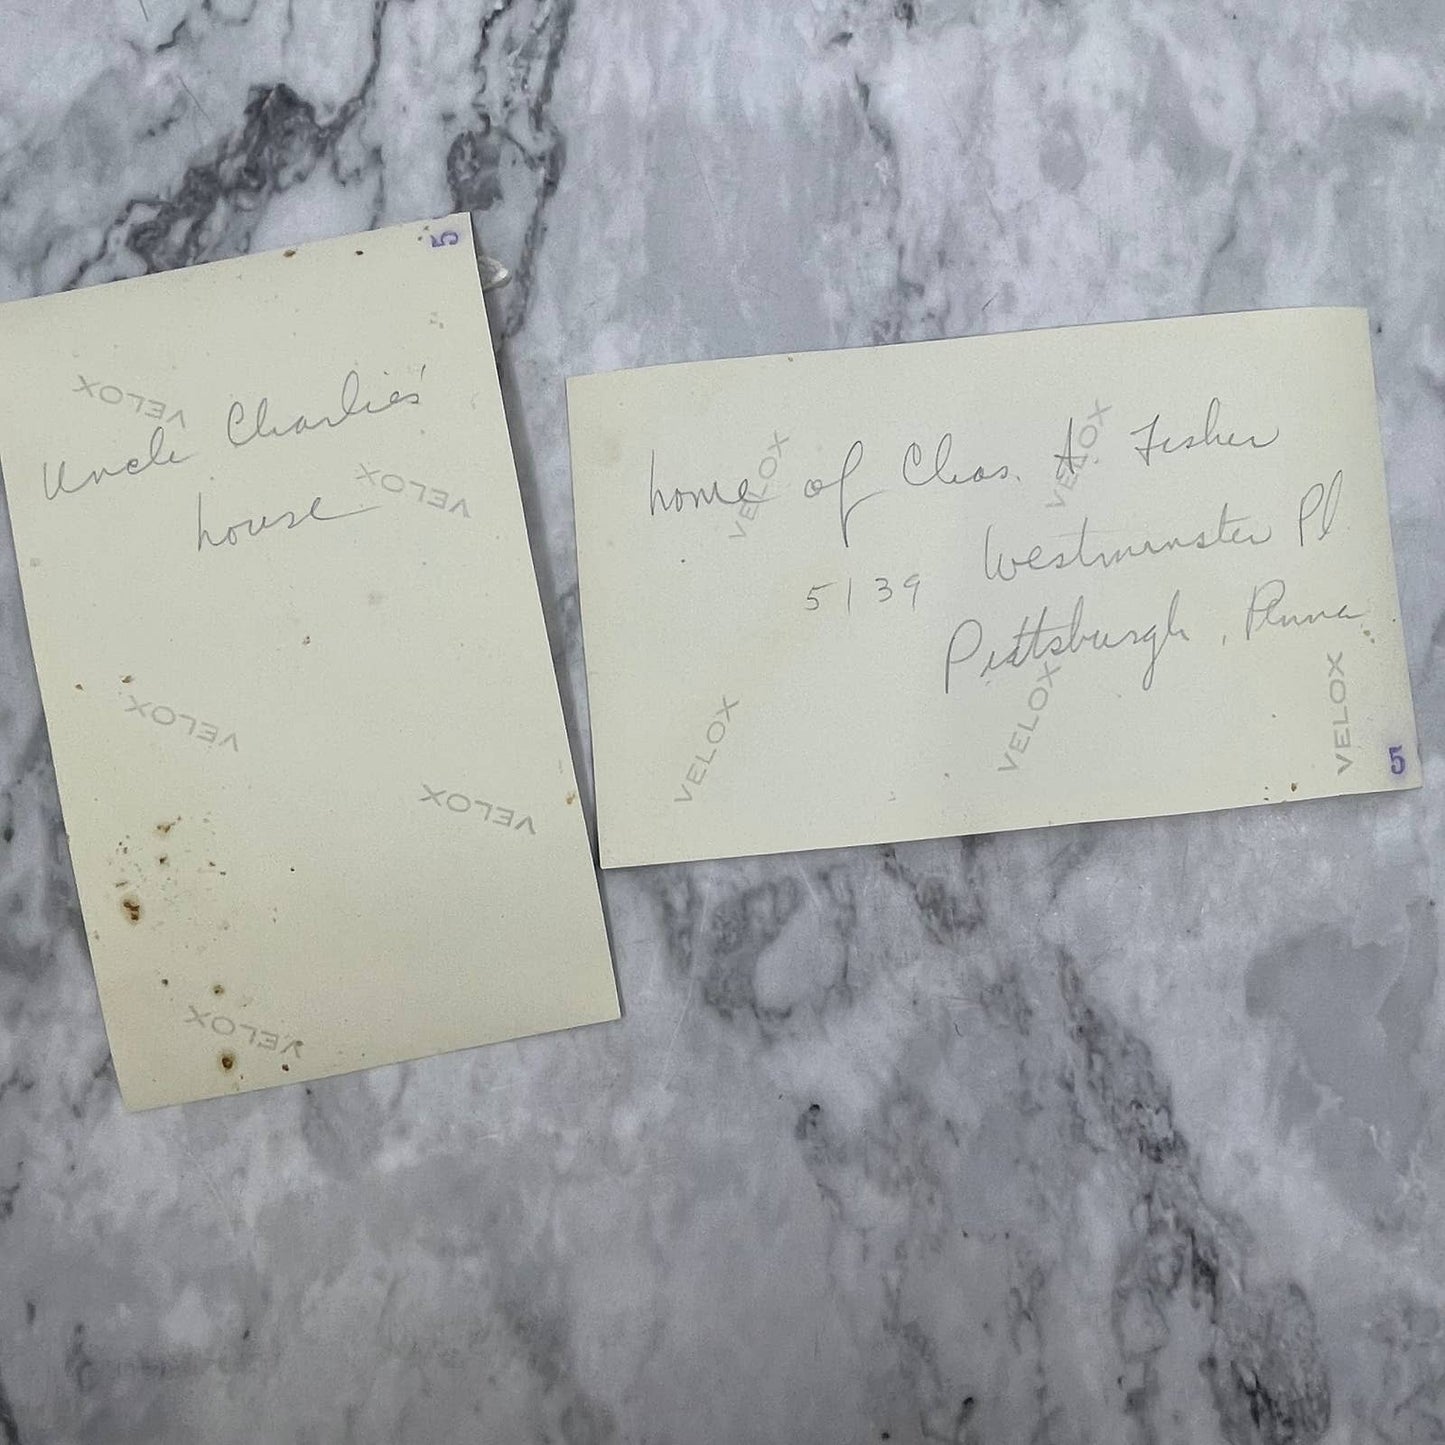 5
VELOX
Uncle Charlies'
VELOX
house
VELOX
VELOX
VELOX
VELOX
VELOX
home of Chas. A. Fisher
5139 Westminster Pl
Pittsburgh, Penna
VELOX
VELOX
VELOX
5